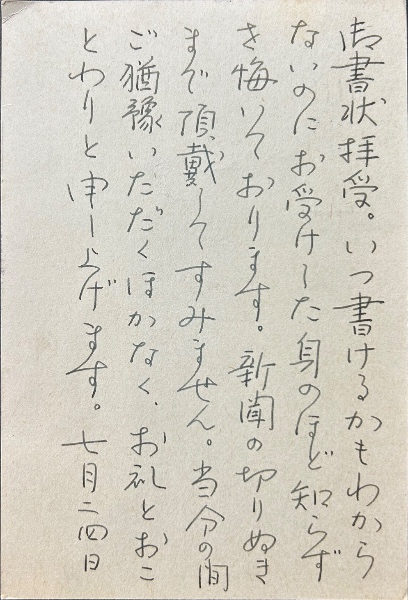 御書状拝受。いつ書けるかもわから
ないのにお受けした身のほど知らず
を悔いております。新聞の切りぬき
まで頂戴してすみません。当分の間
ご猶豫いただくほかなく、お礼とおこ
とわりと申し上げます。七月二四日